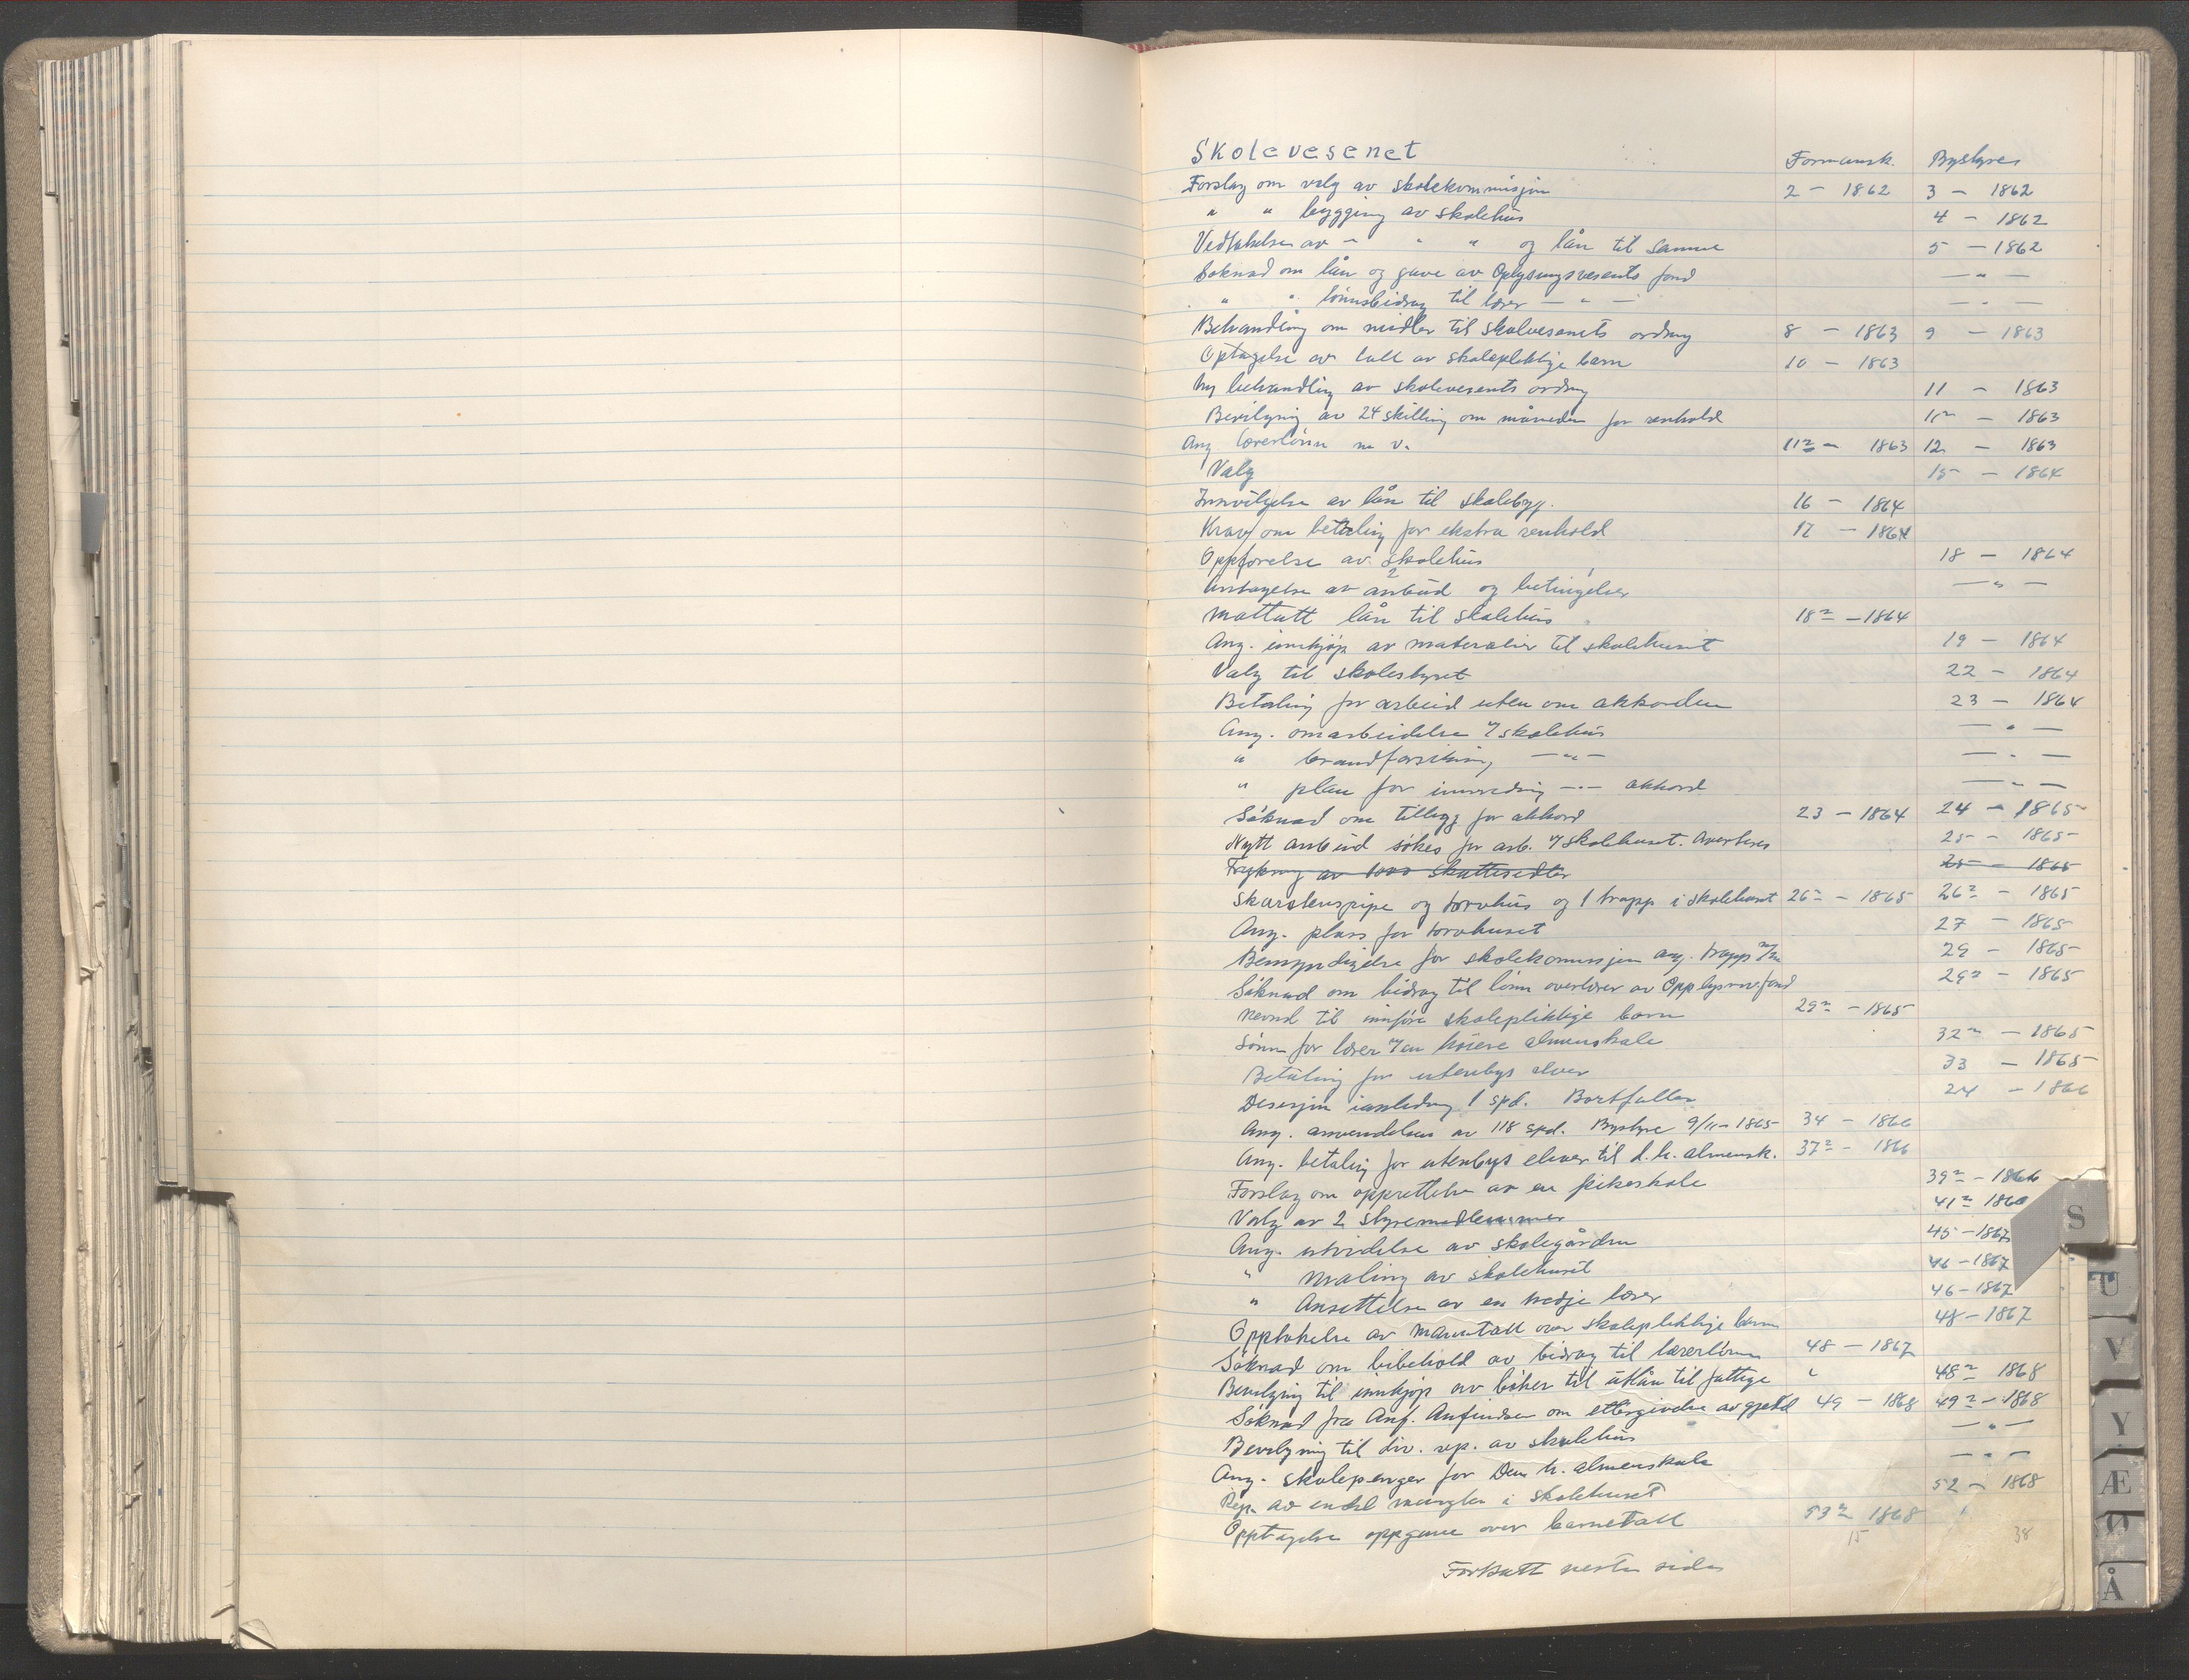 Skolevesenet Formansk. Bystyre
Forslag om valg av skolekommisjon 2 - 1862 3 - 1862
" " bygging av skolehus 4 - 1862
Vedtakelse av - " " og lån til samme 5 - 1862
Søknad om lån og gave av Oplysningsvesents fond — " —
" " lönnsbidrag til lærer — " — — " —
Behandling om midler til skolvesenets ordning 8 - 1863 9 - 1863
Optagelse av tall av skolepliktige barn 10 - 1863
Ny behandling av skolevesents ordning 11 - 1863
Bevilgning av 24 skilling om måneden for renhold 11² - 1863
Ang lærerlönn m v. 11² - 1863 12 - 1863
Valg 15 - 1864
Innvilgelse av lån til skolebyg. 16 - 1864
Krav om betaling for ekstra renhold 17 - 1864
Oppförelse av skolehus 18 - 1864
Antagelse av 2 anbud og betingelser — " —
Mottatt lån til skolehus 18² - 1864
Ang. innkjøp av materialier til skolehuset 19 - 1864
Valg til skolestyret 22 - 1864
Betaling for arbeid uten om akkorden 23 - 1864
Ang. omarbeidelse v/ skolehus — " —
" brandforsikring — " — — " —
" plan for innredning — " — akkord — " —
Söknad om tillegg for akkord 23 - 1864 24 - 1865
Nytt anbud sökes for arb. v/ skolehuset. Averteres 25 - 1865
av 1000 skattesedler 25 - 1865
Skorstenspipe og torvhus og 1 trapp i skolehuset 26² - 1865 26² - 1865
Ang. plass for torvhuset 27 - 1865
Bemyndigelse for skolekomisjon ang. trapp m/m 29 - 1865
Söknad om bidrag til lönn overlærer av Opplysn.v.fond 29² - 1865
Nevnd til innføre skolepliktige barn 29² - 1865
Lönn for lærer v/ en höiere almenskole 32² - 1865
Betaling for utenbys elever 33 - 1865
Desisjon innledning 1 spd. Bortfaller 24 - 1866
Ang. anvendelsen av 118 spd. Bystyre 9/11-1865 34 - 1866
Ang. betaling for utenbys elever til d.h. almensk. 37² - 1866
Forslag om opprettelse av en pikeskole 39² - 1866
Valg av 2 styremedlemmer 41² 1866
Ang. utvidelse av skolegården 45 - 1867
" Maling av skolehuset 46 - 1867
" Ansettelse av en tredje lærer 46 - 1867
Opptakelse av manntall over skolepliktige barn 48 - 1867
Söknad om bibehold av bidrag til lærerlönn 48 - 1867
Bevilgning til innkjøp av bøker til utlån til fattige " 48² 1868
Söknad fra Anf. Anfindsen om ettergivelse av gjeld 49 - 1868 49² - 1868
Bevilgning til div. rep. av skolehus — " —
Ang. skolepenger for Den h. almenskole — " —
Rep. av endel mangler i skolehuset 52 - 1868
Opptagelse oppgave over barnetall 53² 1868
15 38
Fortsatt neste side
S
U
V
Y
Æ
Ø
Å